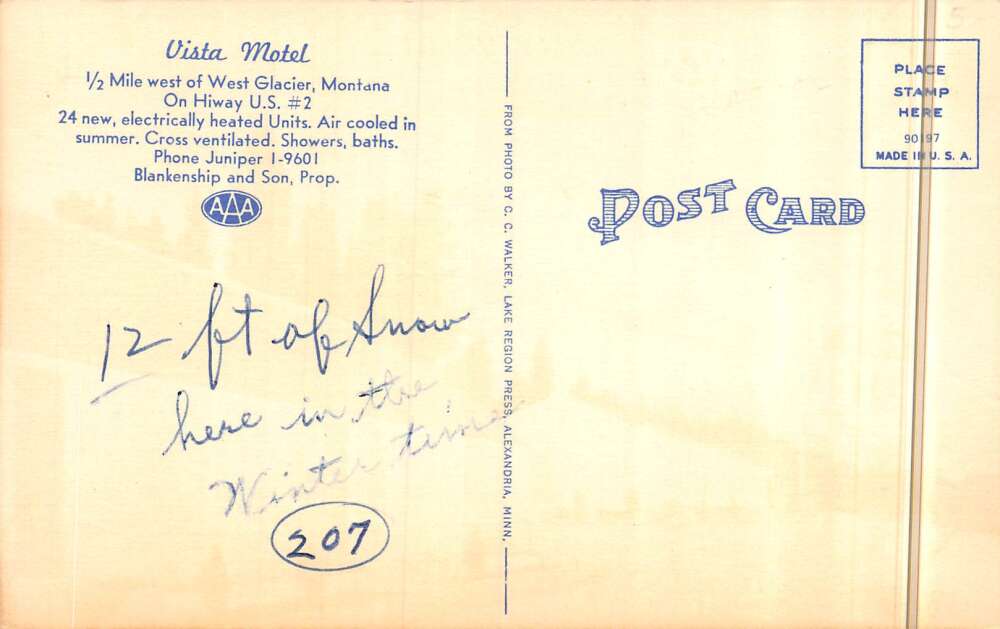 Vista Motel
1/2 Mile west of West Glacier, Montana
On Hiway U.S. #2
24 new, electrically heated Units. Air cooled in
summer. Cross ventilated. Showers, baths.
Phone Juniper 1-9601
Blankenship and Son, Prop.
AAA
12 ft of Snow
here in the
Winter time
207
FROM PHOTO BY C. C. WALKER, LAKE REGION PRESS, ALEXANDRIA, MINN.
POST CARD
PLACE
STAMP
HERE
MADE IN U. S. A.